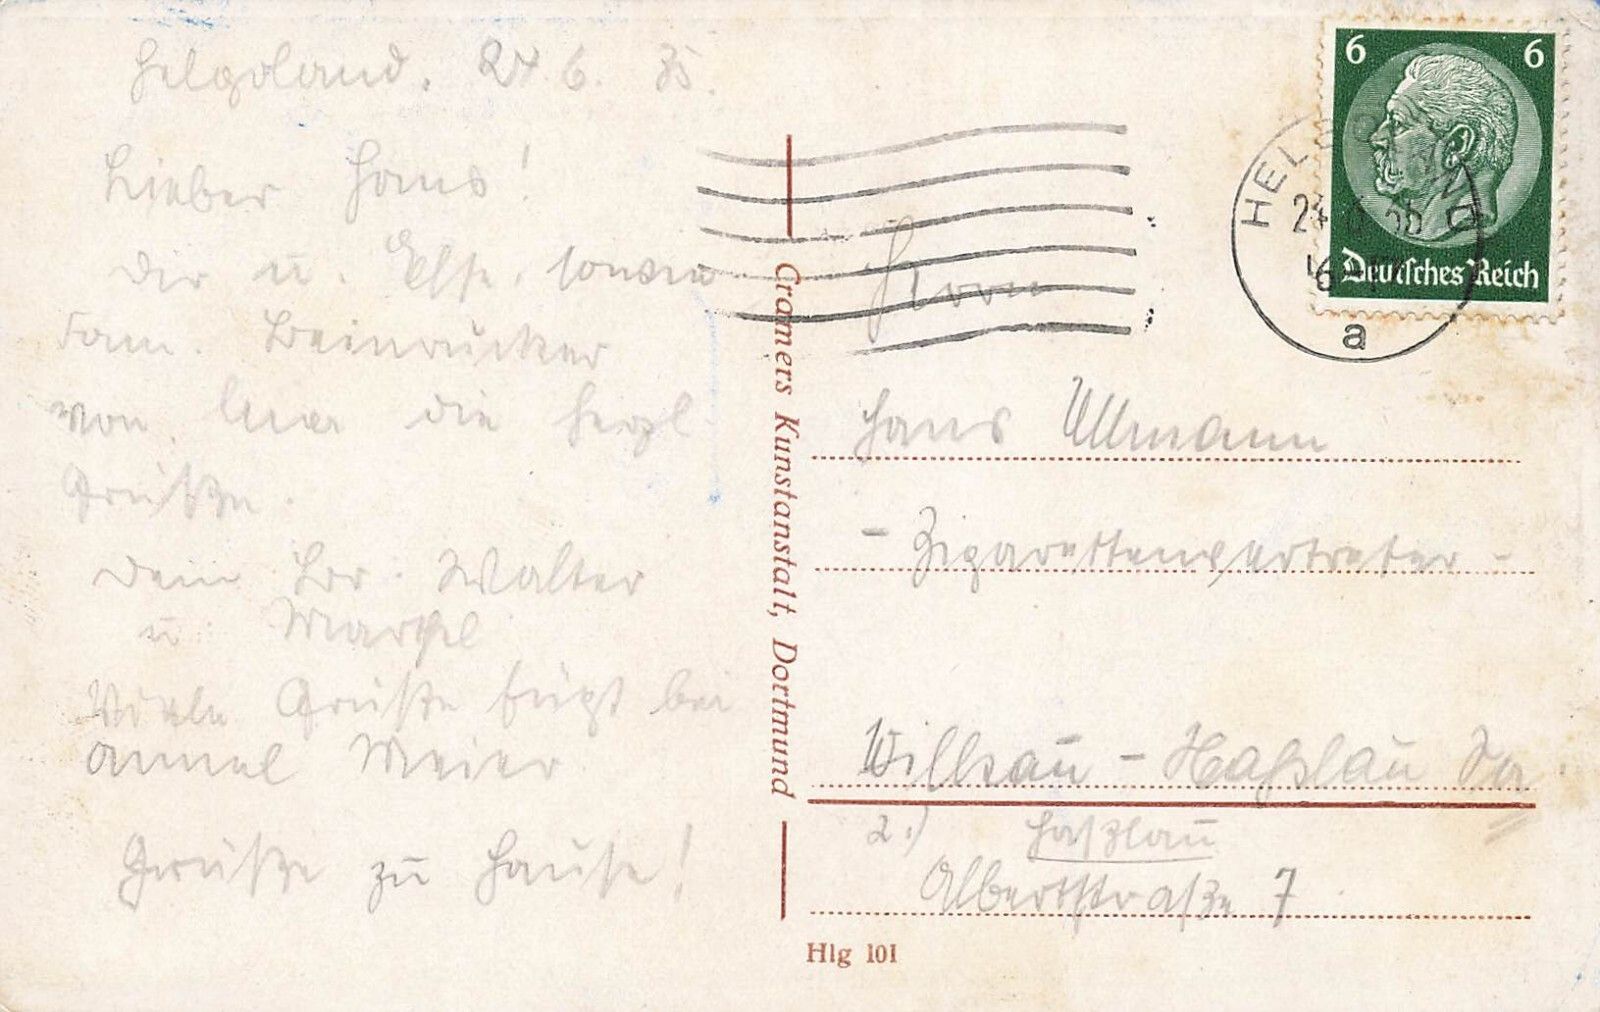 Helgoland. 24.6.35.
Lieber Hans!
Dir u. Else, sowie
Fam. Beinrucker
von hier die herzl.
Grüße.
Dein Br. Walter
u.
Viele Grüße fügt bei
Annel Meier
Grüße zu Hause!
Cramers Kunstanstalt, Dortmund
6 6
Deutsches Reich
HELGOLAND
a
Herrn
Hans Ullmann
- Zigarettenvertreter -
Wilkau - Haßlau Sa
2.) Haßlau
Albertstraße 7
Hlg 101